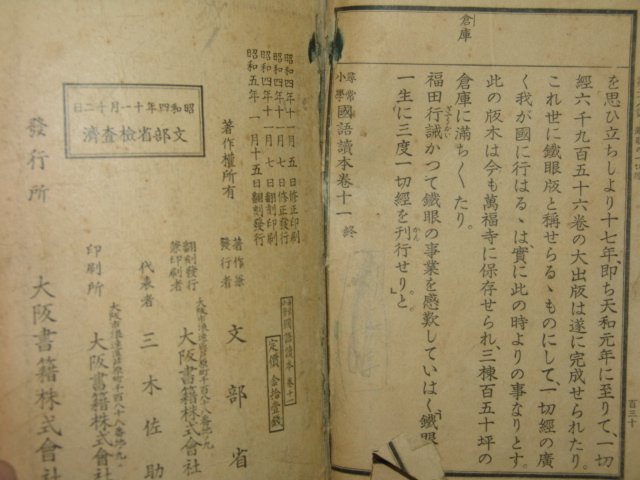 倉庫
を思ひ立ちしより十七年、即ち天和元年に至りて、一切
經六千九百五十六卷の大出版は遂に完成せられたり。
これ世に鐵眼版と稱せらるゝものにして、一切經の廣
く我が國に行はるゝは、實に此の時よりの事なりとす。
此の版木は今も萬福寺に保存せられ、三棟百五十坪の
倉庫に滿ち〱たり。
福田行誡かつて鐵眼の事業を感歎していはく、「鐵眼
一生に三度一切經を刊行せり。」と。
尋常小學國語讀本卷十一 終
百三十
昭和四年十一月五日修正印刷
昭和四年十一月七日修正發行
昭和四年十一月七日翻刻印刷
昭和五年一月十五日翻刻發行
著作權所有
昭和四年十一月十二日
文部省檢査濟
國語讀本 卷十一
定價 金拾壹錢
著作兼發行者 文部省
翻刻發行兼印刷者
大阪書籍株式會社
代表者 三木佐助
印刷所 大阪書籍株式會社
發行所 大阪書籍株式會社